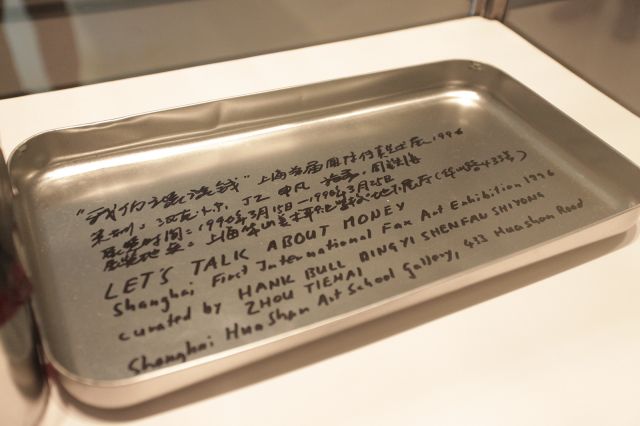 "我们来谈钱" 上海首届国际传真艺术展 1996
策划: 汉克·卜尔, 丁乙 申凡 施勇, 周铁海
展览时间: 1996年3月15日—1996年3月25日
展览地点: 上海华山美术学校 展厅(华山路433号)
LET'S TALK ABOUT MONEY
Shanghai First International Fax Art Exhibition 1996
curated by HANK BULL DINGYI SHENFAN SHIYONG
ZHOU TIEHAI
Shanghai HuaShan Art School Gallery, 433 Huashan Road